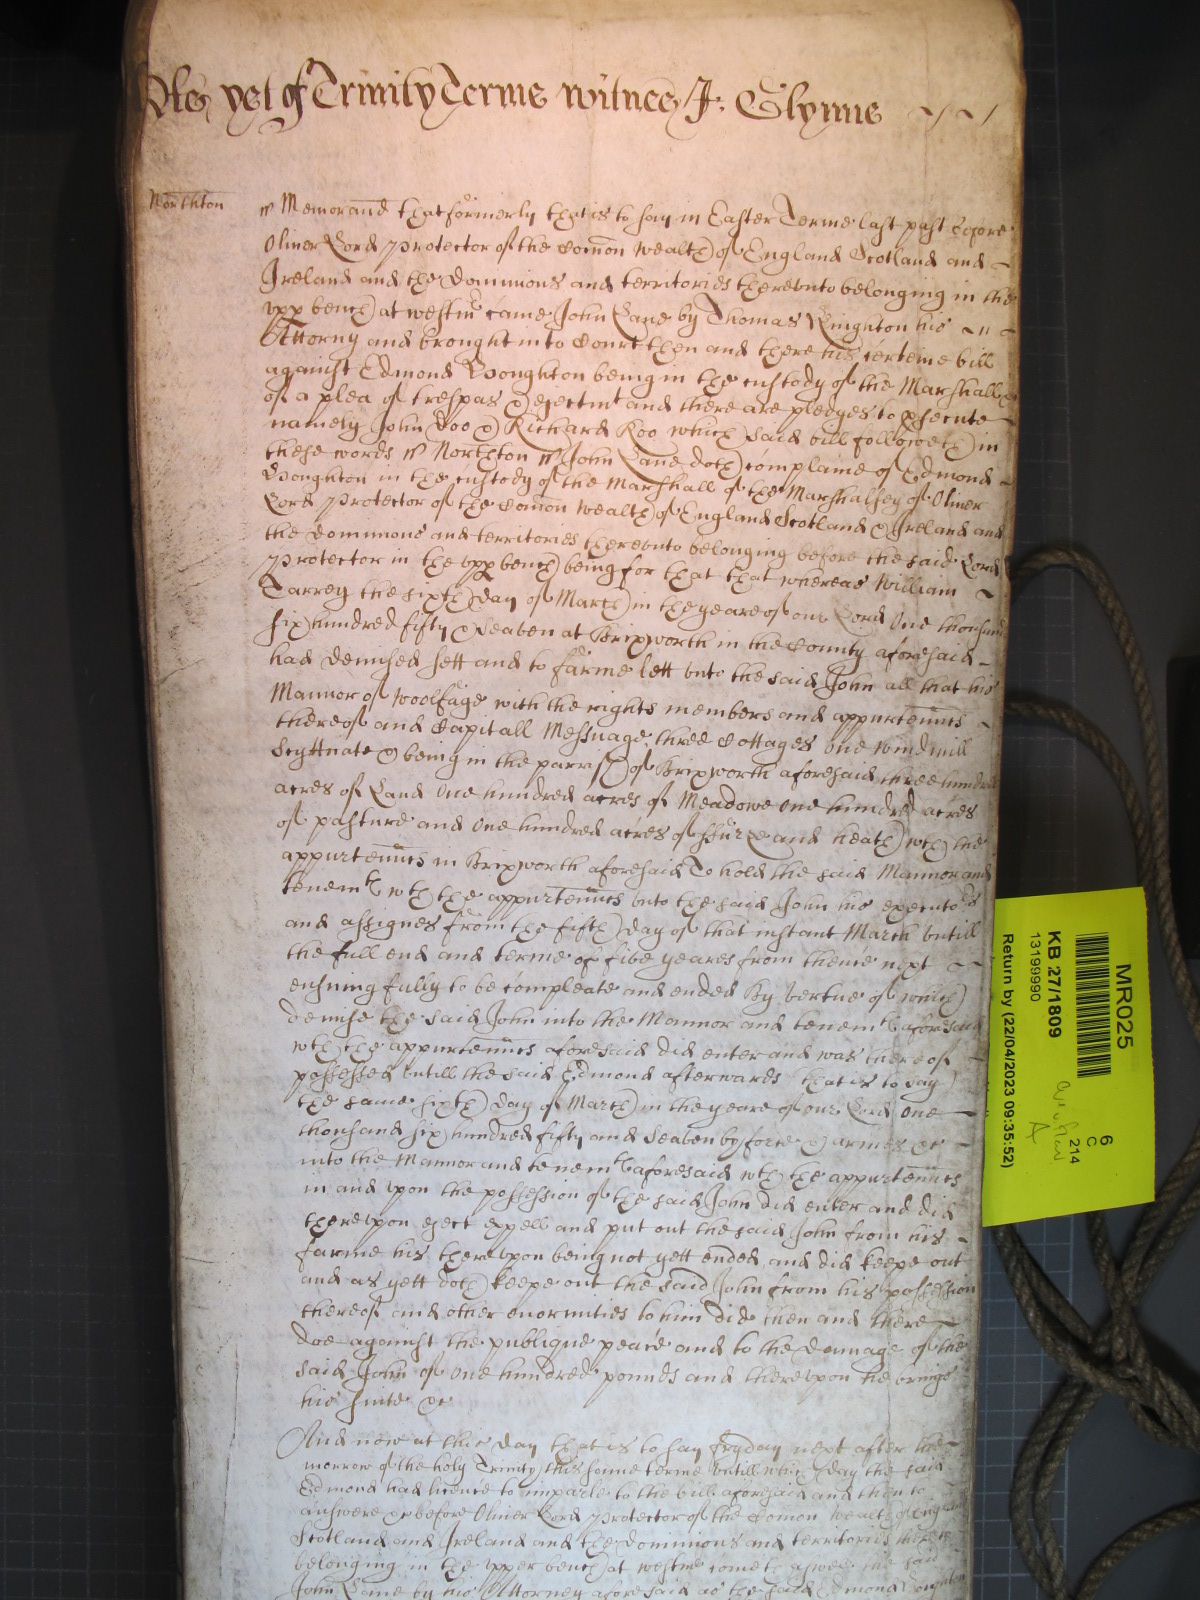 Ples yet of Trinity Terme witnes J: Glynne
Northton
Memorand that formerly that is to say in Easter Terme last past before
Oliver Lord Protector of the Comon wealth of England Scotland and
Ireland and the dominions and territories thereunto belonging in the
upp bench at westmr came John Lane by Thomas Kinghton his
Attorny and brought into Court then and there his certeine bill
against Edmond Boughton being in the custody of the Marshall
of a plea of trespas & ejectmt and there are pledges to psecute
namely John Doo & Richard Roo which said bill followeth in
these words Northton John Lane doth complaine of Edmond
Boughton in the custody of the Marshall of the Marshalsey of Oliver
Lord Protector of the Comon wealth of England Scotland & Ireland and
the dominions and territories thereunto belonging before the said Lord
Protector in the upp bench being for that that whereas William
Tarrey the sixth day of March in the yeare of our Lord One thousand
six hundred fifty & seaven at Brixworth in the County aforesaid
had demised sett and to farme lett unto the said John all that his
Mannor of Woolfage with the rights members and appurtenncs
thereof and Capitall Messuage three Cottages one windmill
Scyttuate & being in the parrish of Brixworth aforesaid three hundred
acres of Land One hundred acres of Meadowe One hundred acres
of pasture and One hundred acres of ffurze and heath wth the
appurtenncs in Brixworth aforesaid To hold the said Mannor and
tenemts wth the appurtenncs unto the said John his executors
and assignes from the fifth day of that instant March untill
the full end and terme of five yeares from thence next
ensuing fully to be compleate and ended By vertue of which
demise the said John into the Mannor and tenemts aforesaid
wth the appurtenncs aforesaid did enter and was thereof
possessed untill the said Edmond afterwards that is to say
the same sixth day of March in the yeare of our Lord One
thousand six hundred fifty and seaven by force & armes &c
into the Mannor and tenemts aforesaid wth the appurtenncs
in and upon the possession of the said John did enter and did
thereupon eject expell and put out the said John from his
farme his thereupon being not yett ended and did keepe out
and as yett doth keepe out the said John from his possession
thereof and other enormities to him did then and there
doe against the publique peace and to the damage of the
said John of One hundred pounds and thereupon he brings
his suite &c
And now at this day that is to say fryday next after the
morrow of the holy Trinity this same terme untill which day the said
Edmond had licence to imparle to the bill aforesaid and then to
answere &c before Oliver Lord Protector of the Comon wealth of England
Scotland and Ireland and the dominions and territories thereunto
belonging in the upper bench at westmr cometh aswell the said
John Lane by his Attorney aforesaid as the said Edmond Boughton
MR025
KB 27/1809
13199990
Return by (22/04/2023 09:35:52)
6
C
214
A